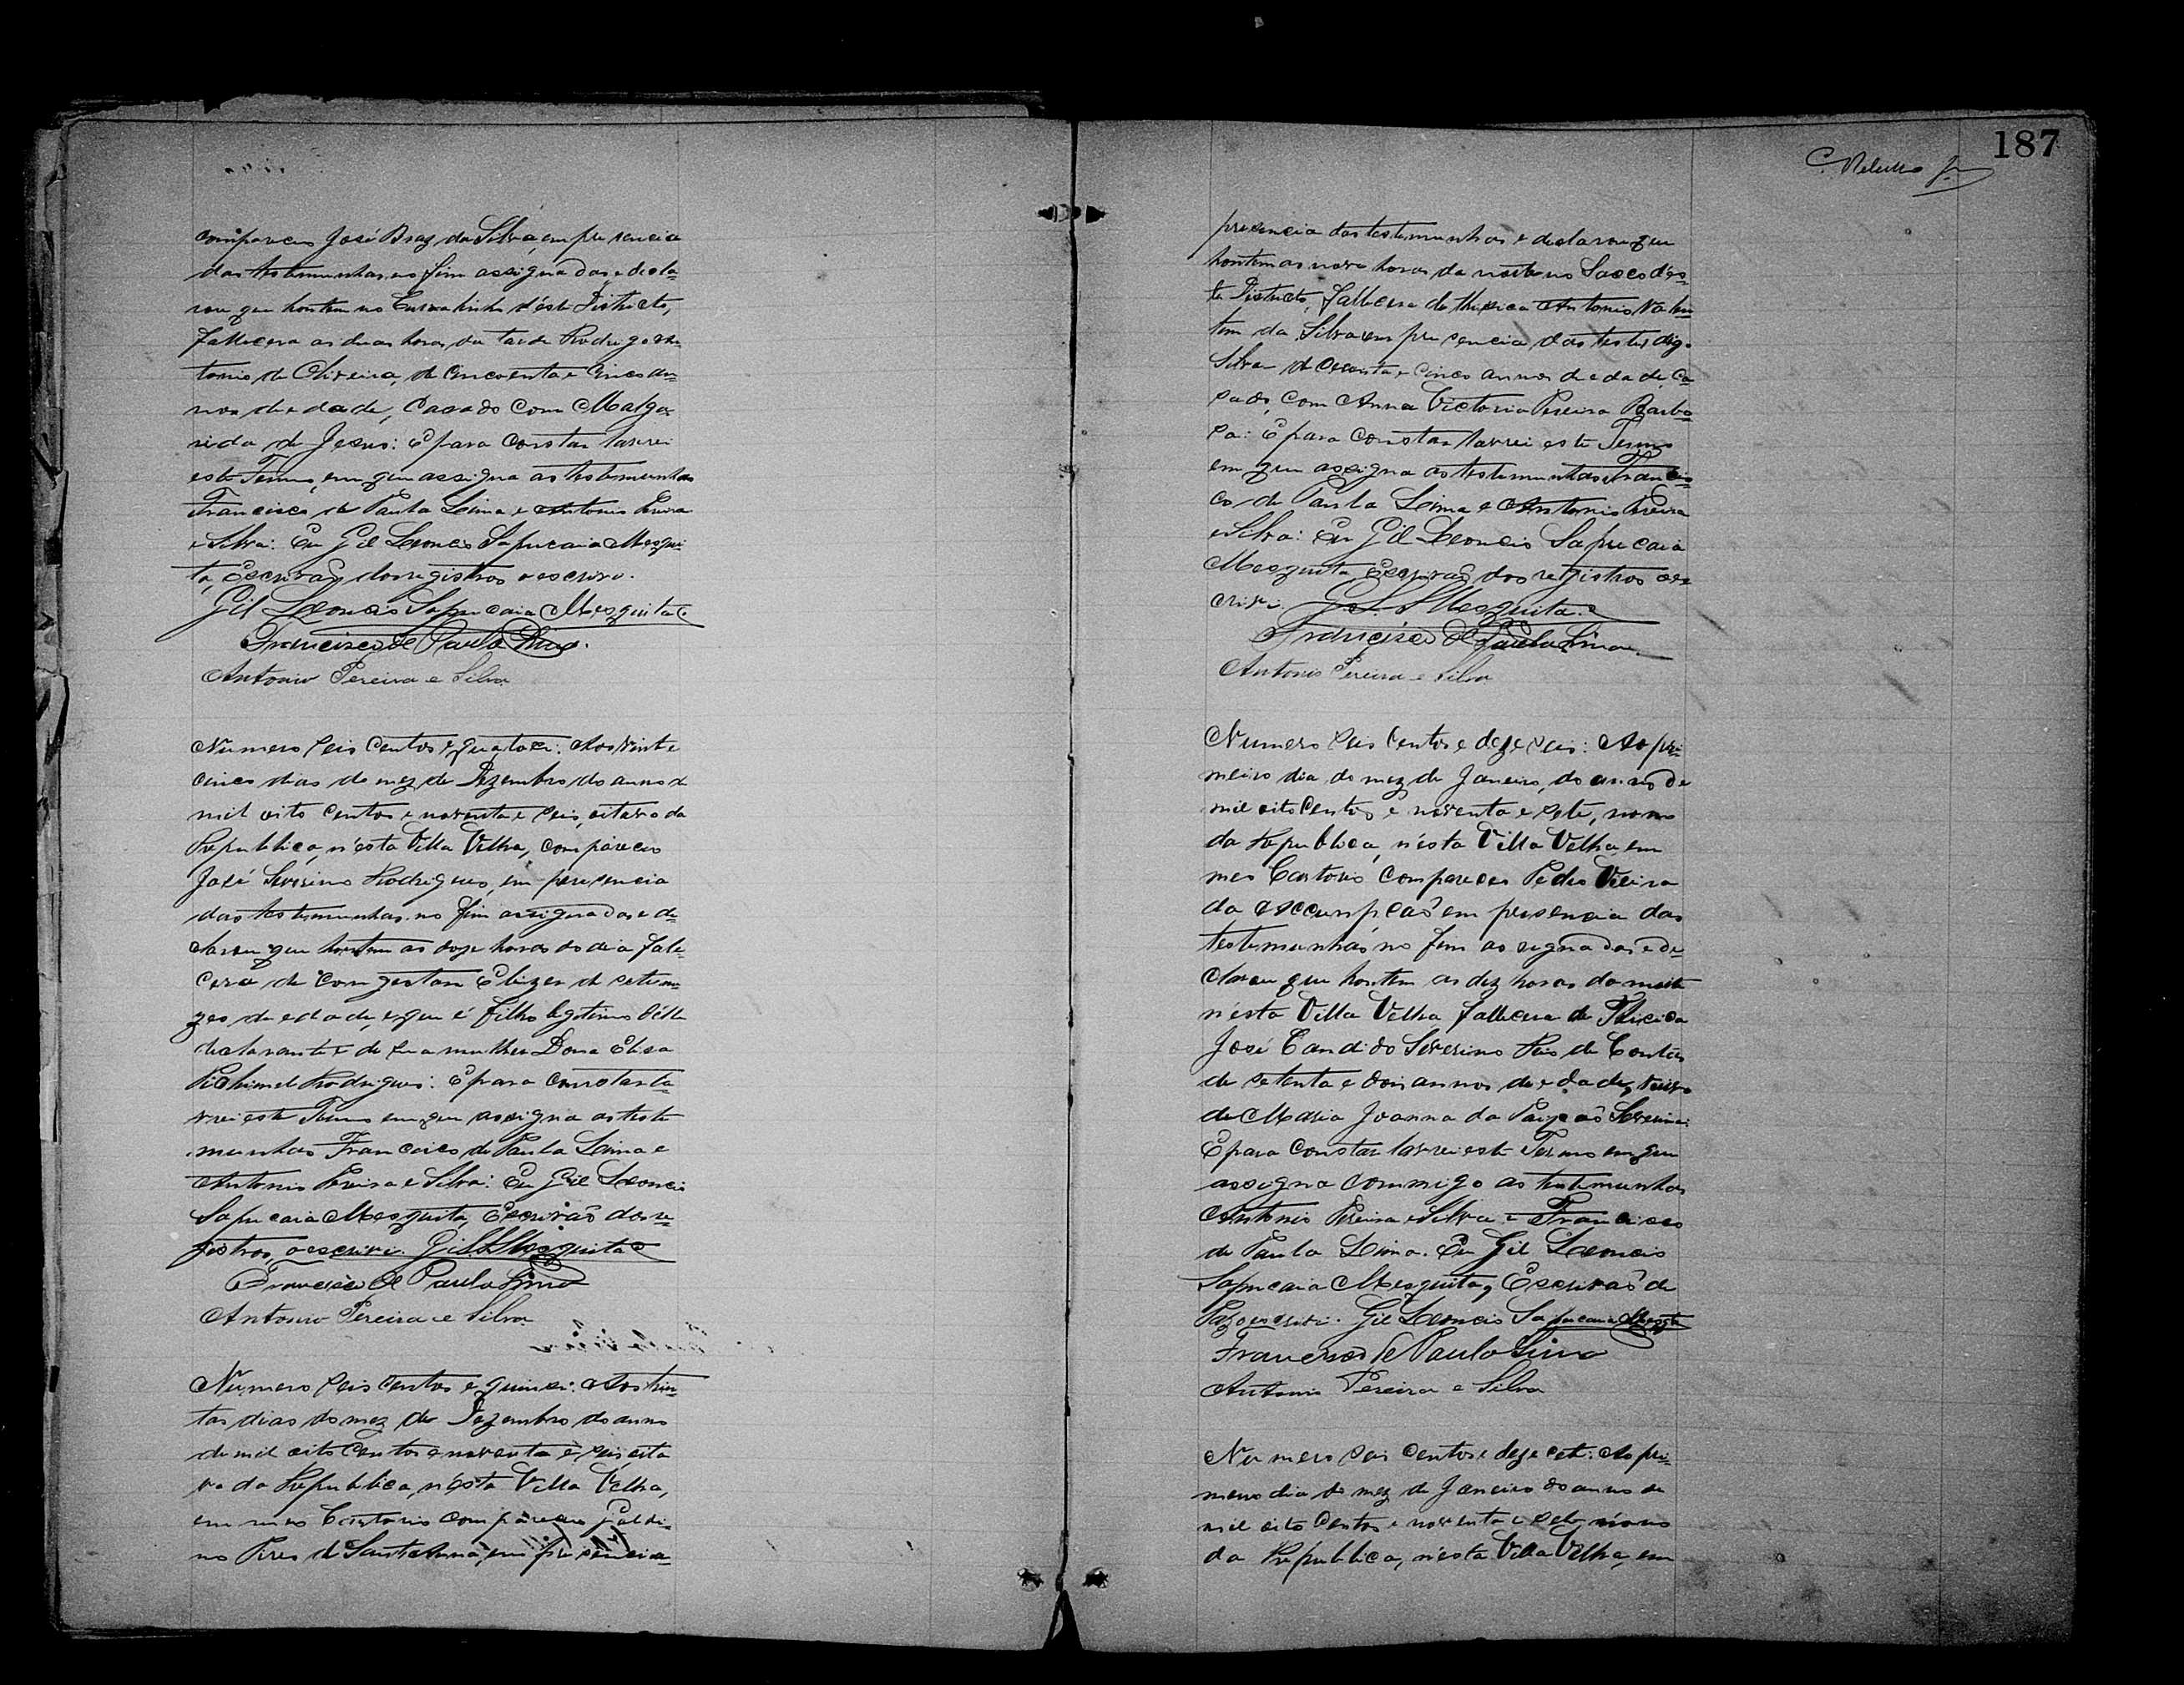 compareceu José Braz da Silva, em presencia
das testemunhas no fim assignadas e decla-
rou que hontem no Curralinho d'este Districto,
fallecera as duas horas da tarde Rodrigo An-
tonio de Oliveira, de cincoenta e cinco an-
nos de edade, casado com Marga-
rida de Jesus: E para constar lavrei
este Termo, em que assigna as testemunhas
Francisco de Paula Lima e Antonio Pereira
e Silva: Eu Gil Leoncio Sapucaia Mesqui-
ta, Escrivaõ dos registros o escrivi.
Gil Leoncio Sapucaia Mesquita
Francisco de Paula Lima.
Antonio Pereira e Silva
Numero seis centos e quatorze: Aos vinte
cinco dias do mez de Dezembro do anno de
mil oito centos e noventa e seis, oitavo da
Républica, n'esta Villa Velha, compareceu
José Severino Rodrigues, em presencia
das testemunhas no fim assignadas e de-
clarou que hontem as doze horas do dia fale-
cera de congestam Eliezer de sete me-
zes de edade, e que é filho legitimo d'elle
declarante e de sua mulher Dona Elisa
Rodrigues: E para constar la-
vrei este Termo em que assigna as teste
munhas Francisco de Paula Lima e
Antonio Pereira e Silva: Eu Gil Leoncio
Sapucaia Mesquita, Escrivaõ dos re-
gistros, o escrivi. G.L.S. Mesquita
Francisco de Paula Lima
Antonio Pereira e Silva
Numero seis centos e quinze: Aos trin-
ta dias do mez de Dezembro do anno
de mil oito centos e noventa e seis oita
vo da Republica, n'esta Villa Velha,
em meo Cartorio compareceu Galdi-
no Pires de Sant'Anna, em presencia
187
presencia das testemunhas e declarou que
hontem as nove horas da noite no Sacco d'es-
te Districto, fallecera de Thisica Antonio Valen-
tim da Silva em presencia das testes digo
Silva de secenta e cinco annos de edade, ca-
sado, com Anna Victoria Pereira Barbo-
sa: E para constar lavrei este Termo
em que assigna as testemunhas Francis-
co de Paula Lima e Antonio Pereira
e Silva: Eu Gil Leoncio Sapucaia
Mesquita, Escrivaõ dos registros o es-
crivi. G.L.S. Mesquita
Francisco de Paula Lima
Antonio Pereira e Silva
Numero seis centos e deze seis: Ao pri-
meiro dia do mez de Janeiro, do anno de
mil oito centos e noventa e sete, nono
da Republica, n'esta Villa Velha, em
meo Cartorio compareceu Pedro Vieira
da Assumpçaõ em presencia das
testemunhas no fim assignadas e de-
clarou que hontem as dez horas da noite
n'esta Villa Velha fallecera de Thisica
José Candido Severino Reis de Contas
de setenta e dois annos de edade, viuvo
de Maria Joanna da Paixaõ Severina:
E para constar lavrei este Termo em que
assigna commigo as testemunhas
Antonio Pereira e Silva e Francisco
de Paula Lima. Eu Gil Leoncio
Sapucaia Mesquita, Escrivaõ de
Paz o escrivi. Gil Leoncio Sapucaia Mesqta
Francisco de Paula Lima
Antonio Pereira e Silva
Numero seis centos e deze sete: Ao pri-
meiro dia do mez de Janeiro do anno de
mil oito centos e noventa e sete nono
da Republica, n'esta Villa Velha, em